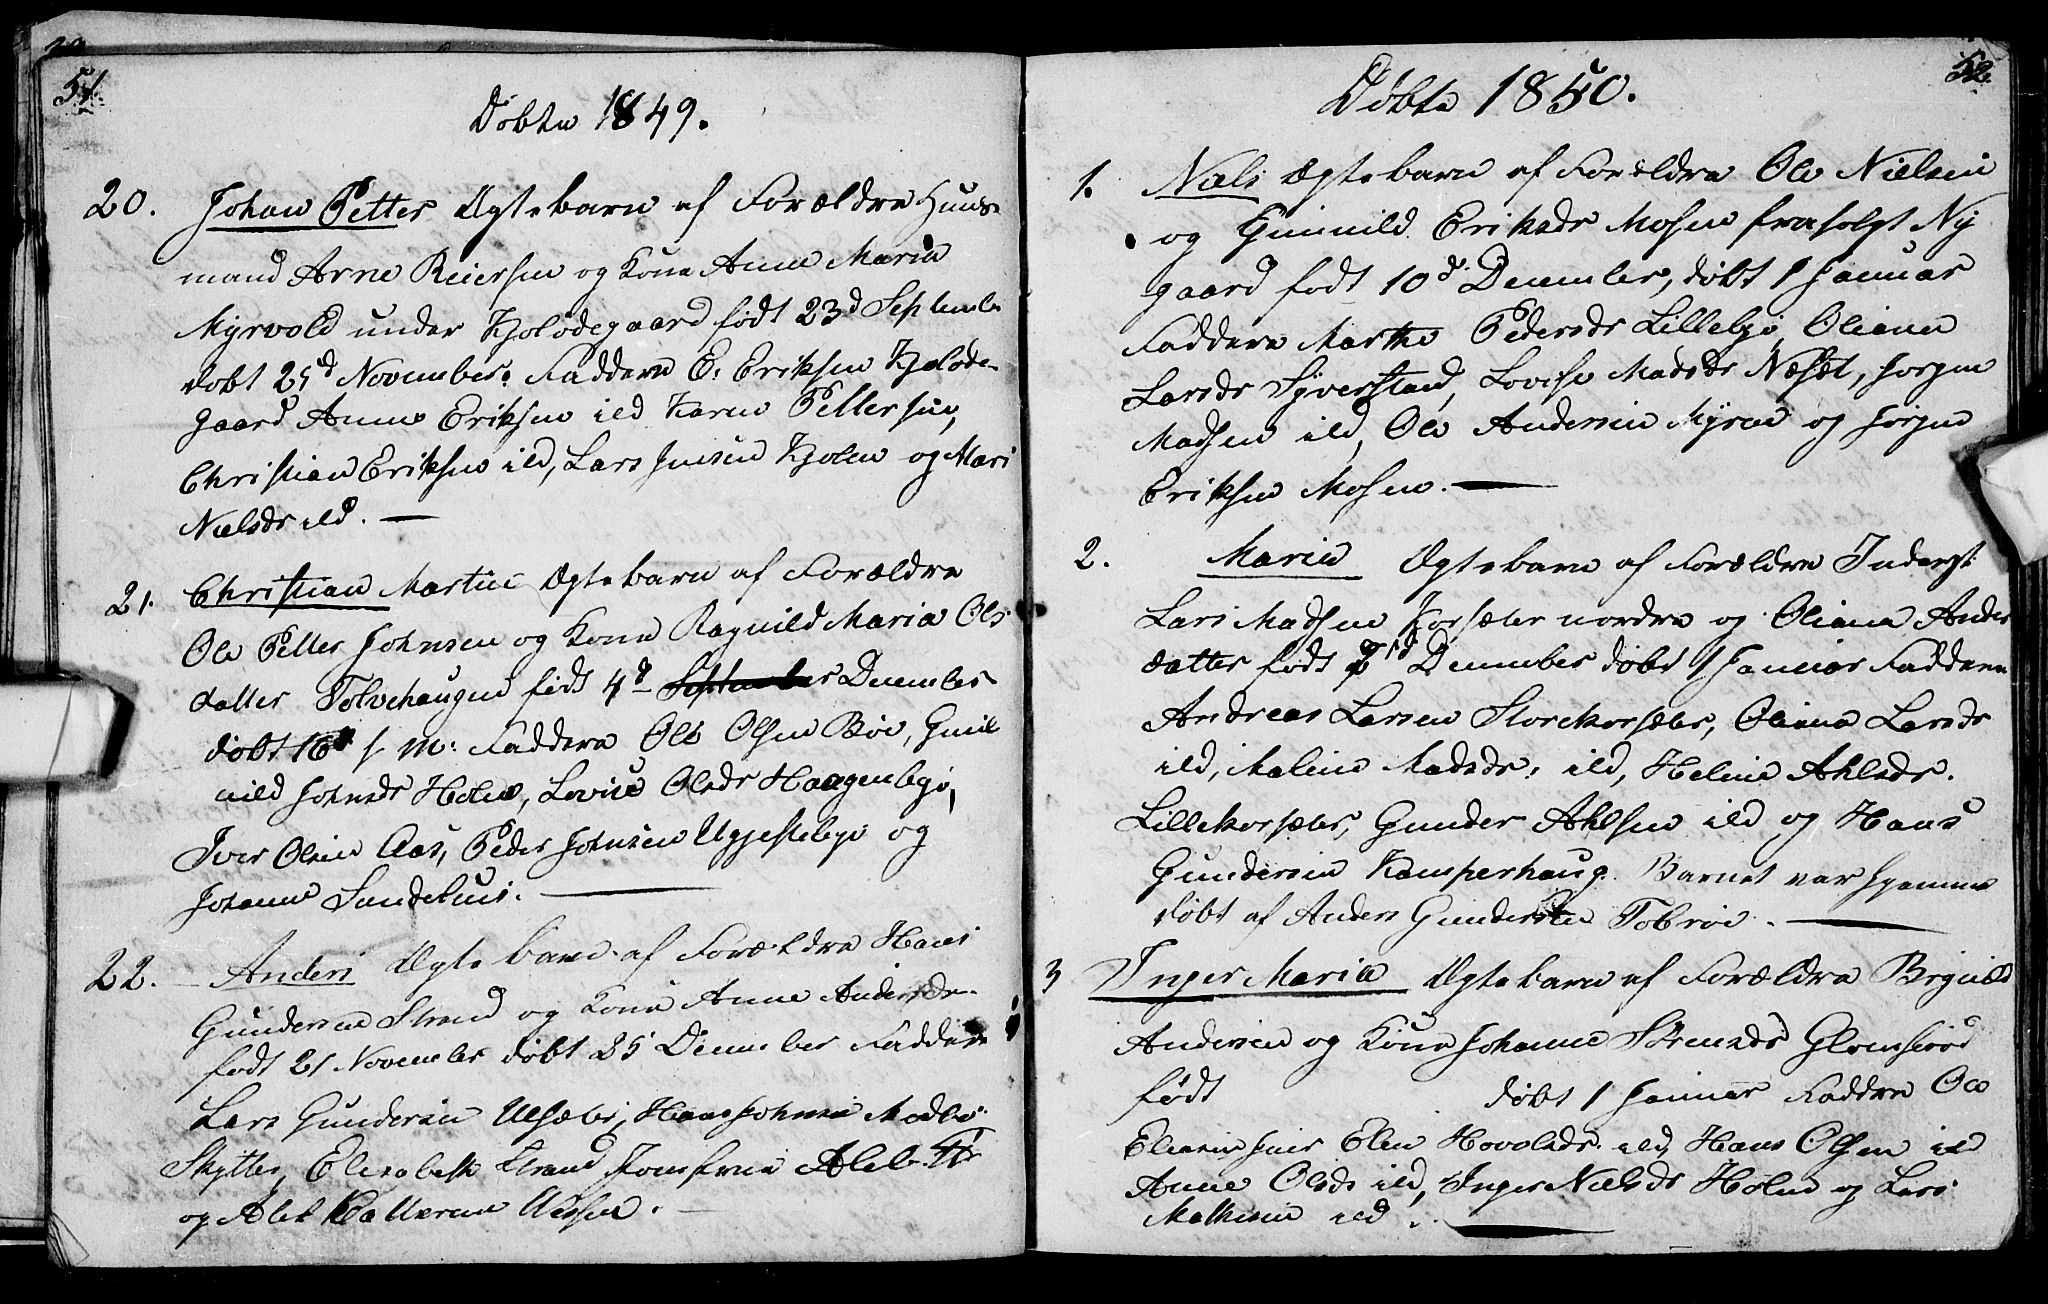 51.
Døbte 1849.
20. Johan Petter Ægtebarn af Forældre Huus-
mand Arne Reiersen og Kone Anne Maria
Myrvold under Kjolodegaard født 23d Septembr
døbt 25d November. Faddere E. Eriksen Kjolode-
gaard Anne Eriksen ild Karen Pettersen,
Christian Eriksen ild, Lars Jensen Kjolen og Mari
Nielsdr ild. —
21. Christian Martin Ægtebarn af Forældre
Ole Petter Johnsen og Kone Ragnild Maria Ols-
datter Tolvehaugen født 4d September December
døbt 16d s. M: Faddere Ole Olsen Bøe, Gun
nild Johnsdr Holen, Lovise Olsdr Haagenbye,
Iver Olsen Aas, Peder Johnsen Uggestebye og
Johanne Sandehuus. —
22. Anders Ægtebarn af Forældre Hans
Gundersen Strand og Kone Anne Andersdr.
født 21 November døbt 25 December Faddere
Lars Gundersen Ulsæby, Hans Johnsen Medbø.
Skytter, Elisabeth Strand Jomfrue
og Alet Katterine Wessen. —
52.
Døbte 1850.
1. Niels Ægtebarn af Forældre Ole Nielsen
og Gunnild Eriksdr Mosen frasolgt Ny
gaard født 10d December, døbt 1 Januar
Faddere Marthe Pedersdr Lillebye Oliana
Larsdr Syverstad, Lovise Madsdr Næset, Jørgen
Madsen ild, Ole Andersen Myren og Jørgen
Eriksen Mosen. —
2. Maria Ægtebarn af Forældre Inderst
Lars Madsen Korsæter nordre og Oliana Anders
datter født December døbt 1 Januar Faddere
Andreas Larsen Storekorsæter, Oliana Larsdr
ild, Maline Madsdr. ild, Helene Ahlsdr.
Lillekorsæter, Gunder Ahlsen ild og Hans
Gundersen Kamperhaug. Barnet var hjemme
døbt af Anders Gundersen Tobrøe. —
3 Inger Maria Ægtebarn af Forældre Brynild
Andersen og Kone Johanne Sørensdr Glomserød
født døbt 1 Januar Faddere Ole
Elen Hovelsdr ild, Hans Olsen ild
Anne Olsdr ild, Inger Nielsdr Holm og Lars
Mathisen ild. —